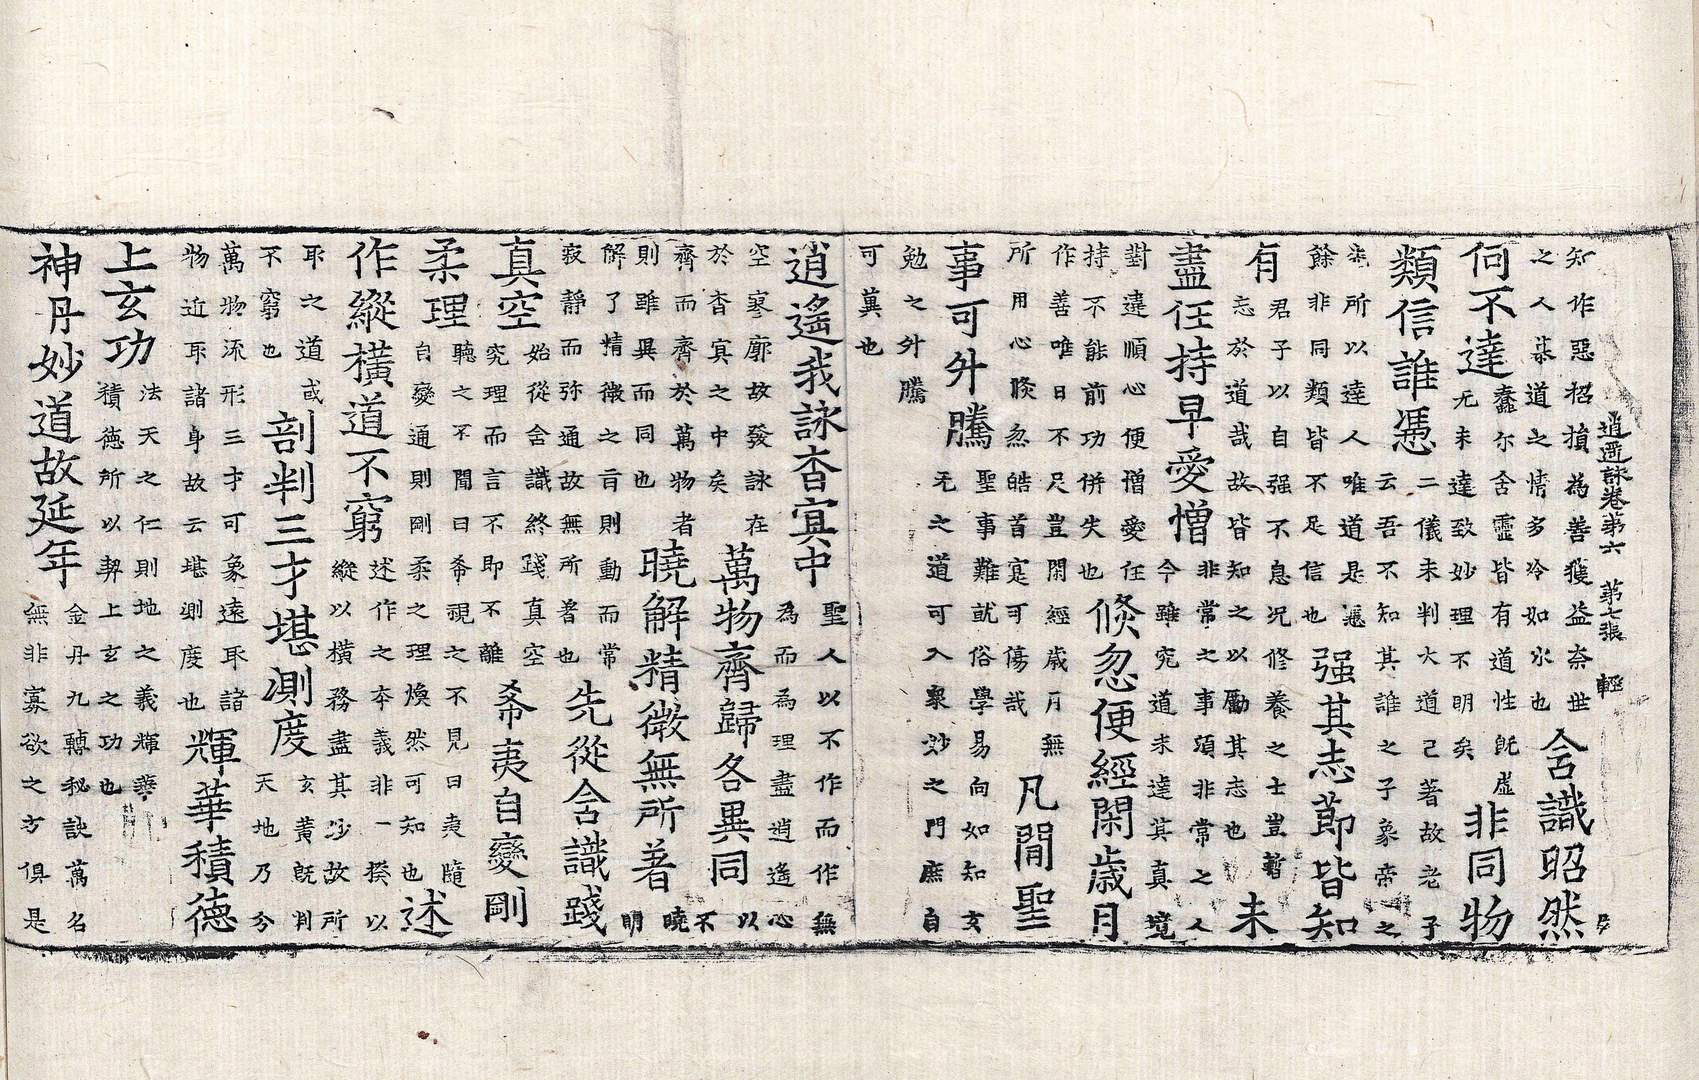 逍遥詠卷第六 第七張 輕
知作惡招損為善獲益奈世
之人慕道之情多冷如氷也
含識昭然
何不達
蠢尒含靈皆有道性旣虛
无未達致妙理不明矣
非同物
類信誰憑
二儀未判大道已著故老子
云吾不知其誰之子象帝之
先所以達人唯道是憑
餘非同類皆不足信也
强其志節皆知
有
君子以自强不息况修養之士豈暫
志於道哉故皆知之以勵其志也
未
盡任持早愛憎
非常之事須非常之人
今雖究道未達其真境
對違順心便憎愛任
持不能前功併失也
倐忽便經閑歲月
作善唯日不足豈閑經歲月無
所用心倐忽皓首寔可傷哉
凡聞聖
事可外騰
聖事難就俗學易向如知玄
无之道可入衆玅之門庶自
勉之外騰
可兾也
逍遙我詠杳冥中
聖人以不作而作無
為而為理盡逍遙心
空寥廓故發詠在
於杳冥之中矣
萬物齊歸各異同
以
不
齊而齊於萬物者
則雖異而同也
曉解精微無所著
曉
明
解了精微之旨則動而常
寂靜而弥通故無所著也
先從含識踐
真空
始從含識終踐真空
究理而言不即不離
希夷自變剛
柔理
聽之不聞曰希視之不見曰夷隨
自變通則剛柔之理煥然可知也
述
作縱橫道不窮
述作之夲義非一揆以
縱以橫務盡其玅故所
耴之道或
不窮也
剖判三才堪測度
玄黃旣判
天地乃分
萬物流形三才可象遠耴諸
物近耴諸身故云堪測度也
輝華積德
上玄功
法天之仁則地之義輝華
積德所以契上玄之功也
神丹妙道故延年
金丹九轉秘訣萬名
無非寡欲之方俱是